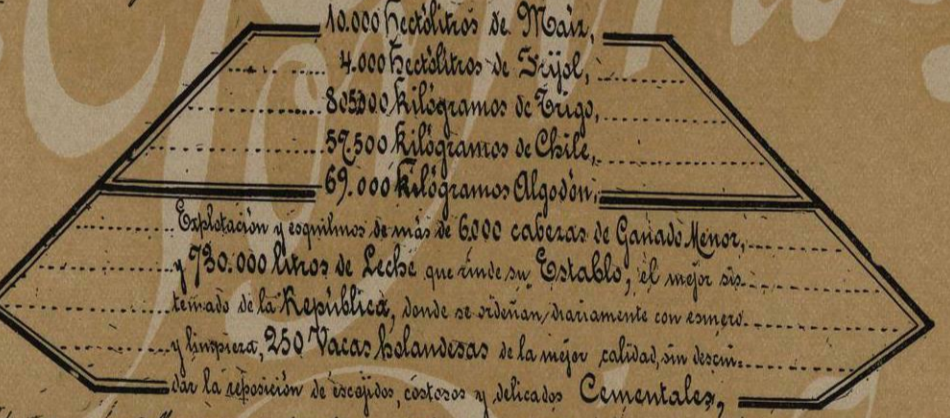 10.000 Hectólitros de Maíz,
4.000 Hectólitros de Frijol,
805000 Kilógramos de Trigo,
59,500 Kilógramos de Chile,
69.000 Kilógramos Algodón;
Explotación y esquilmos de más de 6.000 cabezas de Ganado Menor,
y 730.000 litros de Leche que rinde su Establo, el mejor sis
temado de la República, donde se ordeñan diariamente con esmero
y limpieza, 250 Vacas holandesas de la mejor calidad, sin descui-
dar la reposición de escojidos, costosos y delicados Cementales,